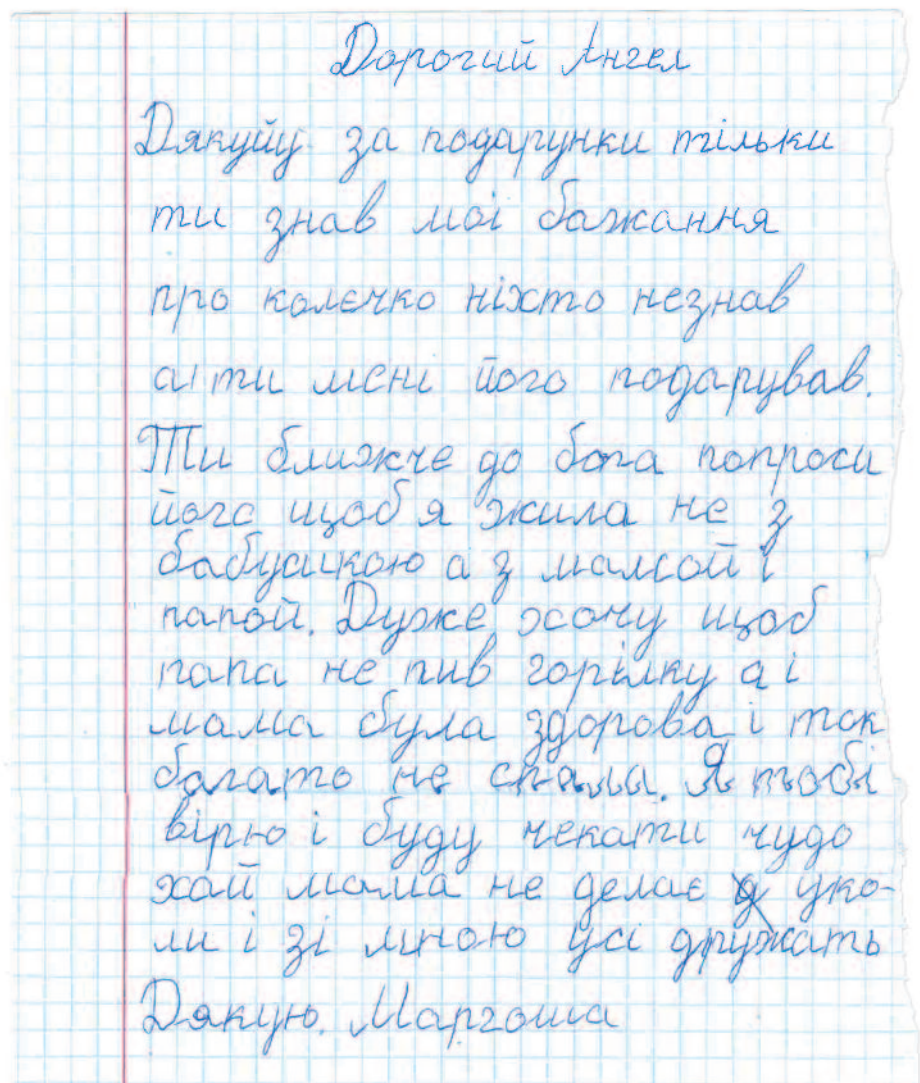 Дорогий Ангел
Дякуйу за подарунки тільки
ти знав мої бажання
про колєчко ніхто незнав
а ти мені його подарував.
Ти ближче до бога попроси
його щоб я жила не з
бабушкою а з мамой і
папой. Дуже хочу щоб
папа не пив горілку а і
мама була здорова і так
багато не спала. Я тобі
вірю і буду чекати чудо
хай мама не делає уко-
ли і зі мною усі дружать
Дякую. Маргоша